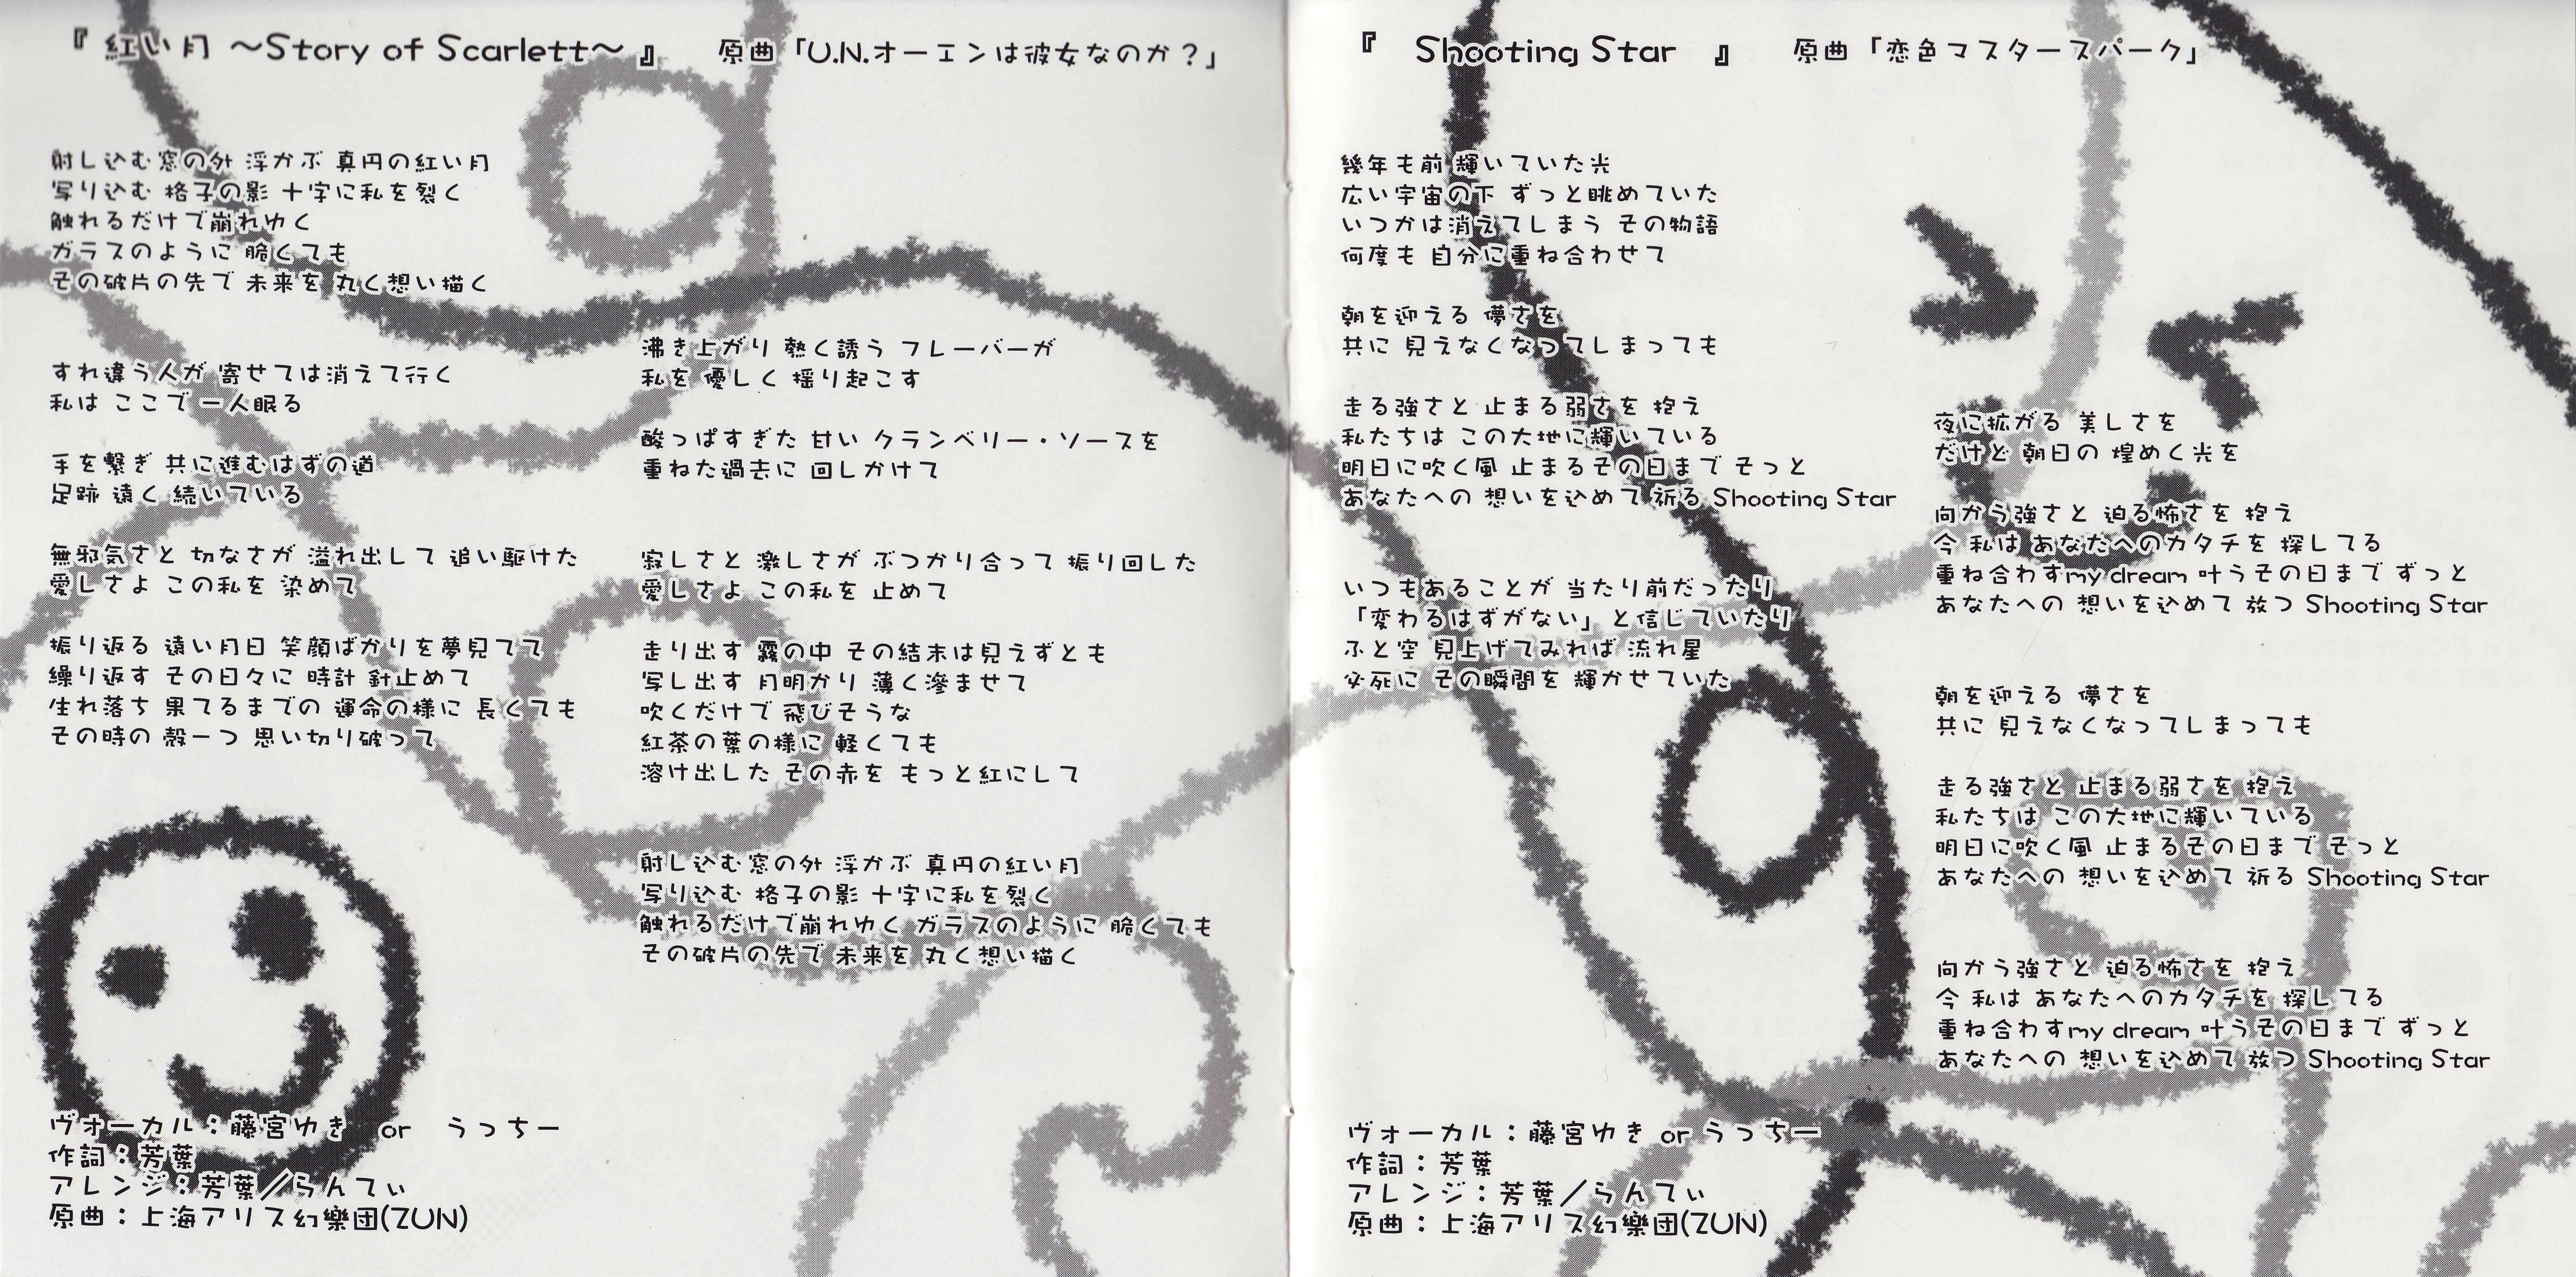 『 紅い月 ～Story of Scarlett～ 』　原曲「U.N.オーエンは彼女なのか？」
射し込む窓の外 浮かぶ 真円の紅い月
写り込む 格子の影 十字に私を裂く
触れるだけで崩れゆく
ガラスのように 脆くても
その破片の先で 未来を 丸く想い描く
すれ違う人が 寄せては消えて行く
私は ここで 一人眠る
手を繋ぎ 共に進むはずの道
足跡 遠く 続いている
無邪気さと 切なさが 溢れ出して 追い駆けた
愛しさよ この私を 染めて
振り返る 遠い月日 笑顔ばかりを夢見てて
繰り返す その日々に 時計 針止めて
生れ落ち 果てるまでの 運命の様に 長くても
その時の 殻一つ 思い切り破って
沸き上がり 熱く誘う フレーバーが
私を 優しく 揺り起こす
酸っぱすぎた 甘い クランベリー・ソースを
重ねた過去に 回しかけて
寂しさと 激しさが ぶつかり合って 振り回した
愛しさよ この私を 止めて
走り出す 霧の中 その結末は見えずとも
写し出す 月明かり 薄く滲ませて
吹くだけで 飛びそうな
紅茶の葉の様に 軽くても
溶け出した その赤を もっと紅にして
射し込む窓の外 浮かぶ 真円の紅い月
写り込む 格子の影 十字に私を裂く
触れるだけで崩れゆく ガラスのように 脆くても
その破片の先で 未来を 丸く想い描く
ヴォーカル：藤宮ゆき　or　うっちー
作詞：芳葉
アレンジ：芳葉／らんてぃ
原曲：上海アリス幻樂団(ZUN)
『　Shooting Star　』　原曲「恋色マスタースパーク」
幾年も前 輝いていた光
広い宇宙の下 ずっと眺めていた
いつかは消えてしまう その物語
何度も 自分に重ね合わせて
朝を迎える 儚さを
共に 見えなくなってしまっても
走る強さと 止まる弱さを 抱え
私たちは この大地に輝いている
明日に吹く風 止まるその日まで そっと
あなたへの 想いを込めて 祈る Shooting Star
いつもあることが 当たり前だったり
「変わるはずがない」と信じていたり
ふと空 見上げてみれば 流れ星
必死に その瞬間を 輝かせていた
夜に拡がる 美しさを
だけど 朝日の 煌めく光を
向かう強さと 迫る怖さを 抱え
今 私は あなたへのカタチを 探してる
重ね合わすmy dream 叶うその日まで ずっと
あなたへの 想いを込めて 放つ Shooting Star
朝を迎える 儚さを
共に 見えなくなってしまっても
走る強さと 止まる弱さを 抱え
私たちは この大地に輝いている
明日に吹く風 止まるその日まで そっと
あなたへの 想いを込めて 祈る Shooting Star
向かう強さと 迫る怖さを 抱え
今 私は あなたへのカタチを 探してる
重ね合わすmy dream 叶うその日まで ずっと
あなたへの 想いを込めて 放つ Shooting Star
ヴォーカル：藤宮ゆき or うっちー
作詞：芳葉
アレンジ：芳葉／らんてぃ
原曲：上海アリス幻樂団(ZUN)